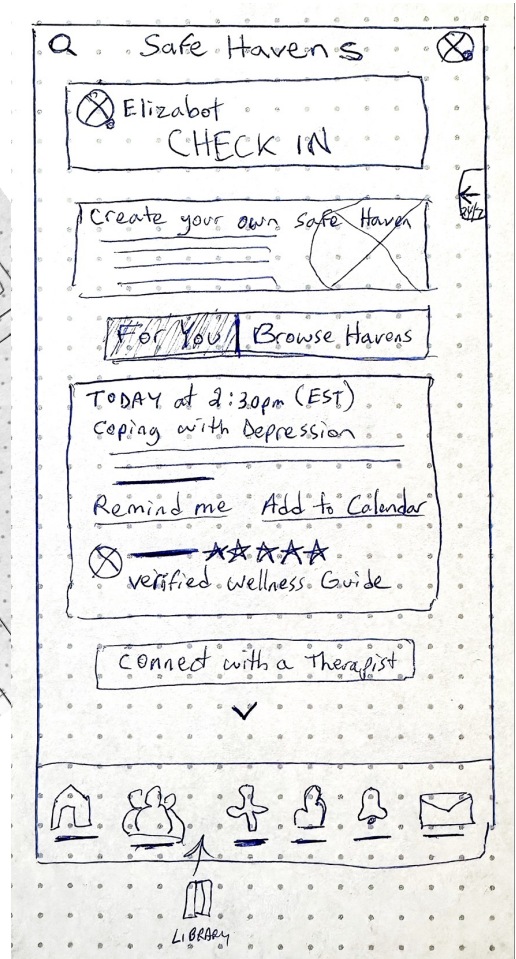 Safe Havens
Elizabot
CHECK IN
Create your own Safe Haven
24/7
For You
Browse Havens
TODAY at 2:30pm (EST)
Coping with Depression
Remind me
Add to Calendar
verified wellness Guide
Connect with a Therapist
LIBRARY